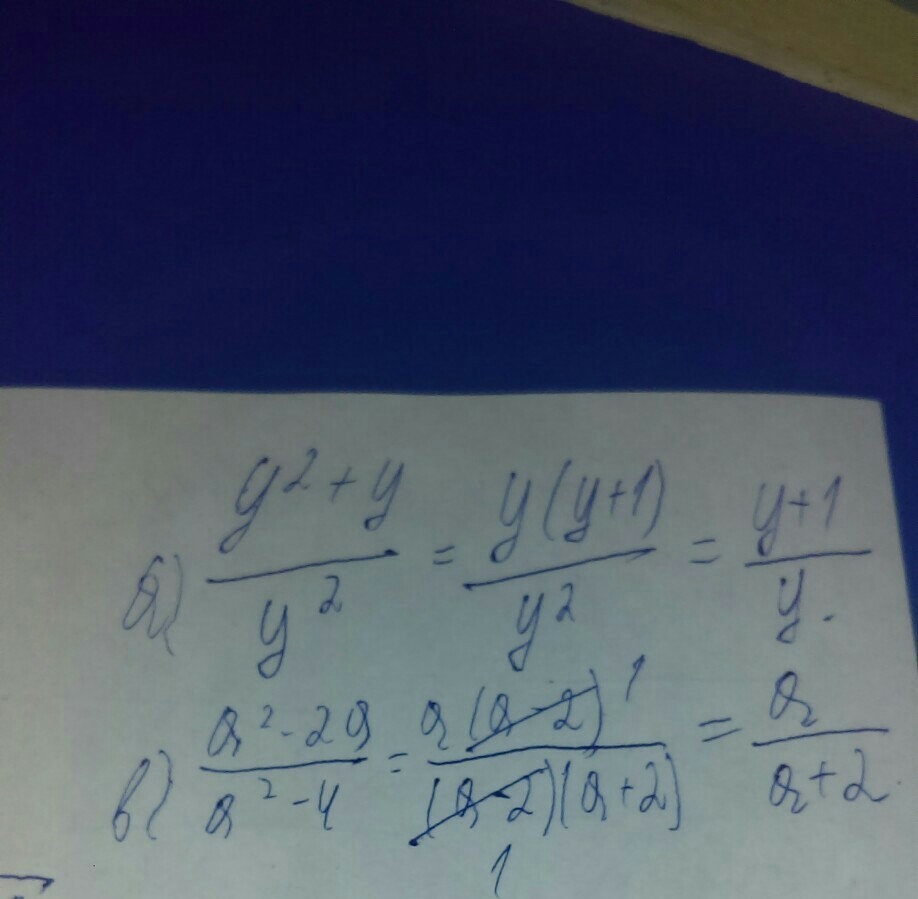 а) y²+y / y² = y(y+1) / y² = y+1 / y.
в) a²-2a / a²-4 = a(a-2) 1 / (a-2)(a+2) 1 = a / a+2.